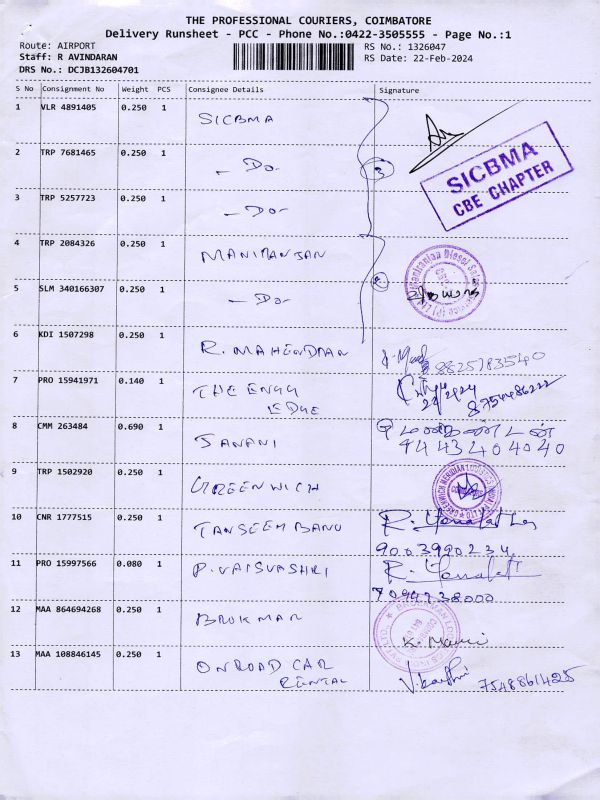 THE PROFESSIONAL COURIERS, COIMBATORE
Delivery Runsheet - PCC - Phone No.:0422-3505555 - Page No.:1
Route: AIRPORT RS No.: 1326047
Staff: R AVINDARAN RS Date: 22-Feb-2024
DRS No.: DCJB132604701
S No Consignment No Weight PCS Consignee Details Signature
1 VLR 4891405 0.250 1 SICBMA
SICBMA
CBE CHAPTER
2 TRP 7681465 0.250 1 - Do - 3
3 TRP 5257723 0.250 1 - Do -
4 TRP 2084326 0.250 1 MANIMANJAN
5 SLM 340166307 0.250 1 - Do - 2
6 KDI 1507298 0.250 1 R. MAHENDRAN 8825783540
7 PRO 15941971 0.140 1 THE ENGG
EDGE 22/2/24 8754486222
8 CMM 263484 0.690 1 JANANI
9443404040
9 TRP 1502920 0.250 1 GREENWICH
10 CNR 1777515 0.250 1 TANSEEM BANU
9003990234
11 PRO 15997566 0.080 1 P. VAISVASHRI
7094238000
12 MAA 864694268 0.250 1 BROKMAN
13 MAA 108846145 0.250 1 ONROAD CAR
RENTAL 7548861425